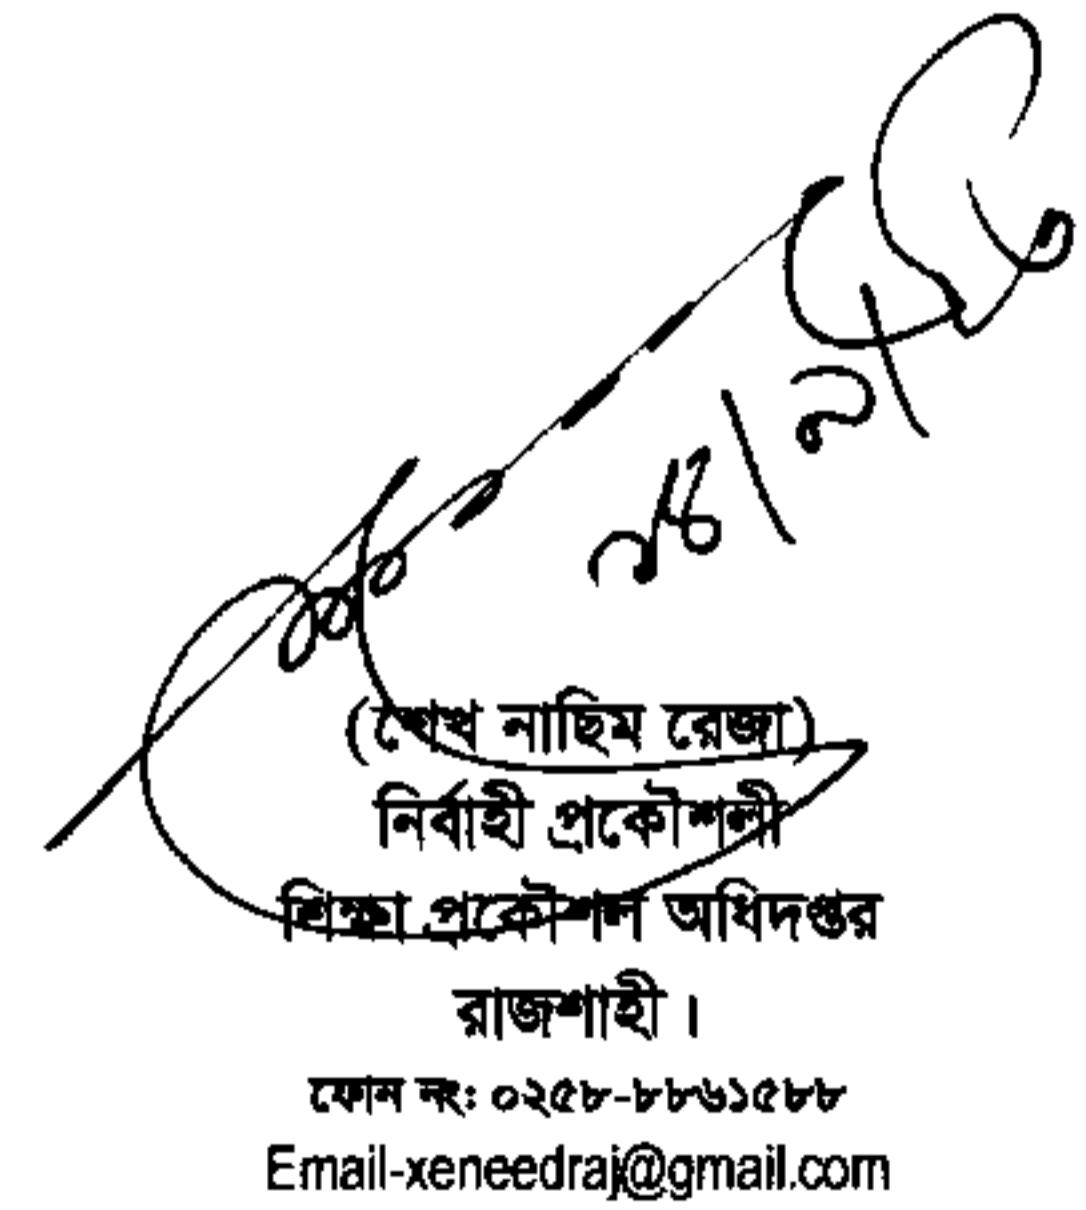 (শেখ নাছিম রেজা)
নির্বাহী প্রকৌশলী
শিক্ষা প্রকৌশল অধিদপ্তর
রাজশাহী।
ফোন নং: ০২৫৮-৮৮৬১৫৮৮
Email-xeneedraj@gmail.com